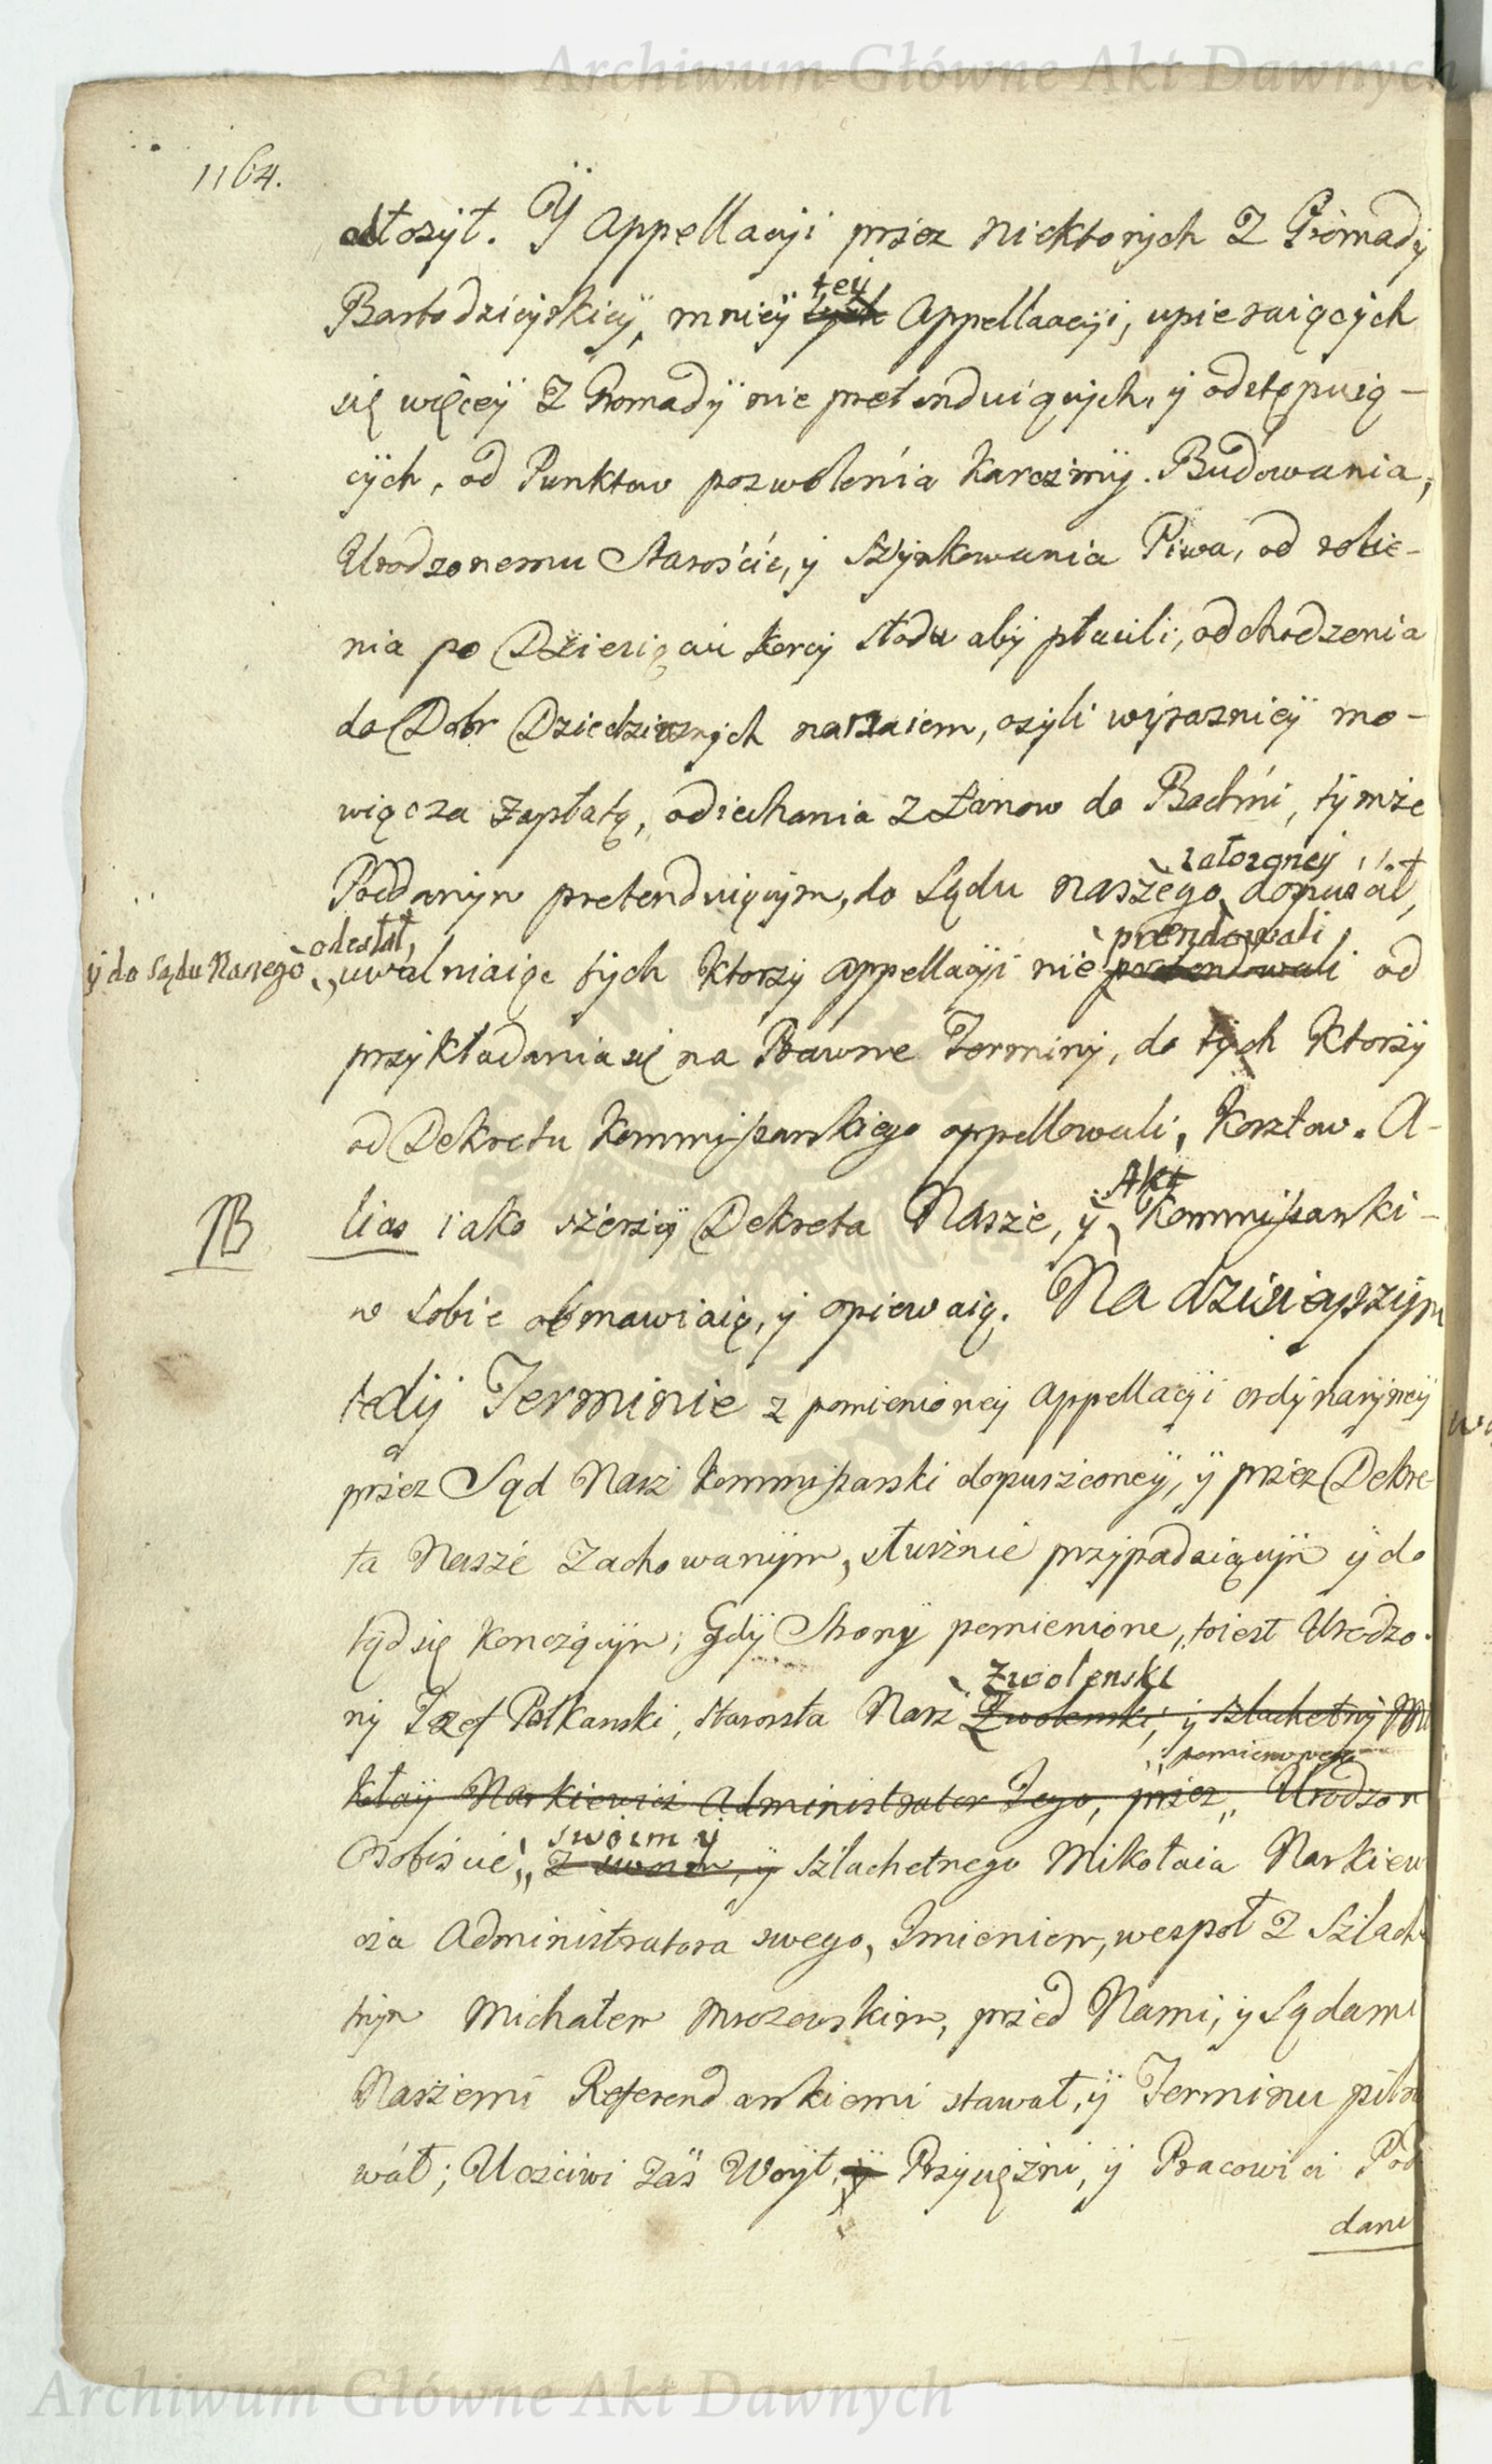 Archiwum Główne Akt Dawnych
1164.
odłożył. Y Appellacyi przez niektorych Z Gromady
Bartodzieyskiey, mniey tych tey Appellaacyi, upieraiących
się więcey Z Gromady nie pretenduiących, y odstępuią-
cych, od Punktow pozwolenia Karczmy. Budowania,
Urodzonemu Staroście, y Szynkowania Piwa, od robie-
nia po Dziesięciu korcy słodu aby płacili, od chodzenia
do Dobr Dziedzicznych narzaiem, czyli wyrazniey mo-
wiąc za zapłatą, od iechania z Łanow do Bachni, tymże
Poddanym pretenduiącym, do Sądu naszego załozoney dopuścił,
y do Sądu Naszego odesłał, uwalniaiąc tych ktorzy appellacyi nie pretendowali prendowali od
przykładania się na Prawne Terminy, do tych Ktorzy
od Dekretu Kommissarskiego appellowali, Kosztow. A-
NB lias iako szerzey Dekreta Nasze, y Akt Kommissarski-
w sobie obmawiaią, y opiewaią. Na dzisieyszym
tedy Terminie z pomienioney appellacyi ordynaryiney
przez Sąd Nasz Kommissarski dopuszczoney, y przez Dekre-
ta Nasze Zachowanym, słusznie przypadaiącym y do
tąd się konczącym; Gdy Strony pomienione, toiest Urodzo-
ny Jozef Potkanski, Starosta Nasz Zwolenski Zwolenski, y szlachetny Mi
kołay Narkiewicz Administrator Jego, przez pomienionego Urodzon
Osobiście, swoim y Z swoim, y Szlachetnego Mikołaia Narkiew
cza Administratora swego, Imieniem, wespoł Z Szlache
tnym Michałem Mrozowskim, przed Nami, y Sądami
Naszemi Referendarskiemi stawał, y Terminu pilno
wał; Uczciwi zaś Woyt, y Przysiężni, y Pracowici Pod
dani
Archiwum Główne Akt Dawnych